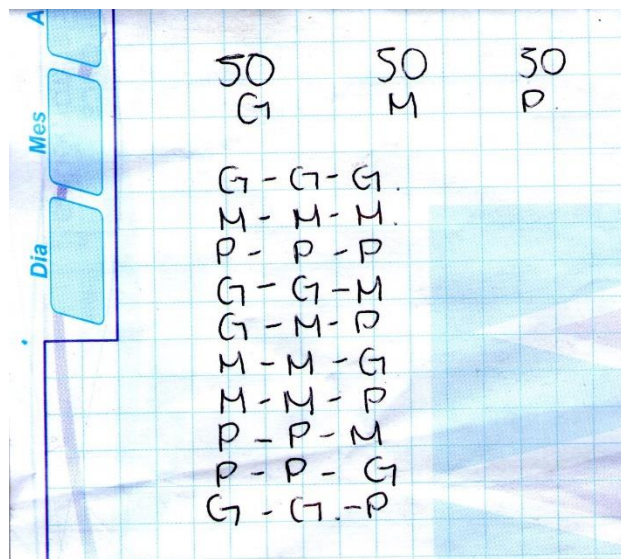 A
Mes
Dia
50 50 30
G M P
G - G - G.
M - M - M.
P - P - P
G - G - M
G - M - P
M - M - G
M - M - P
P - P - M
P - P - G
G - G. - P